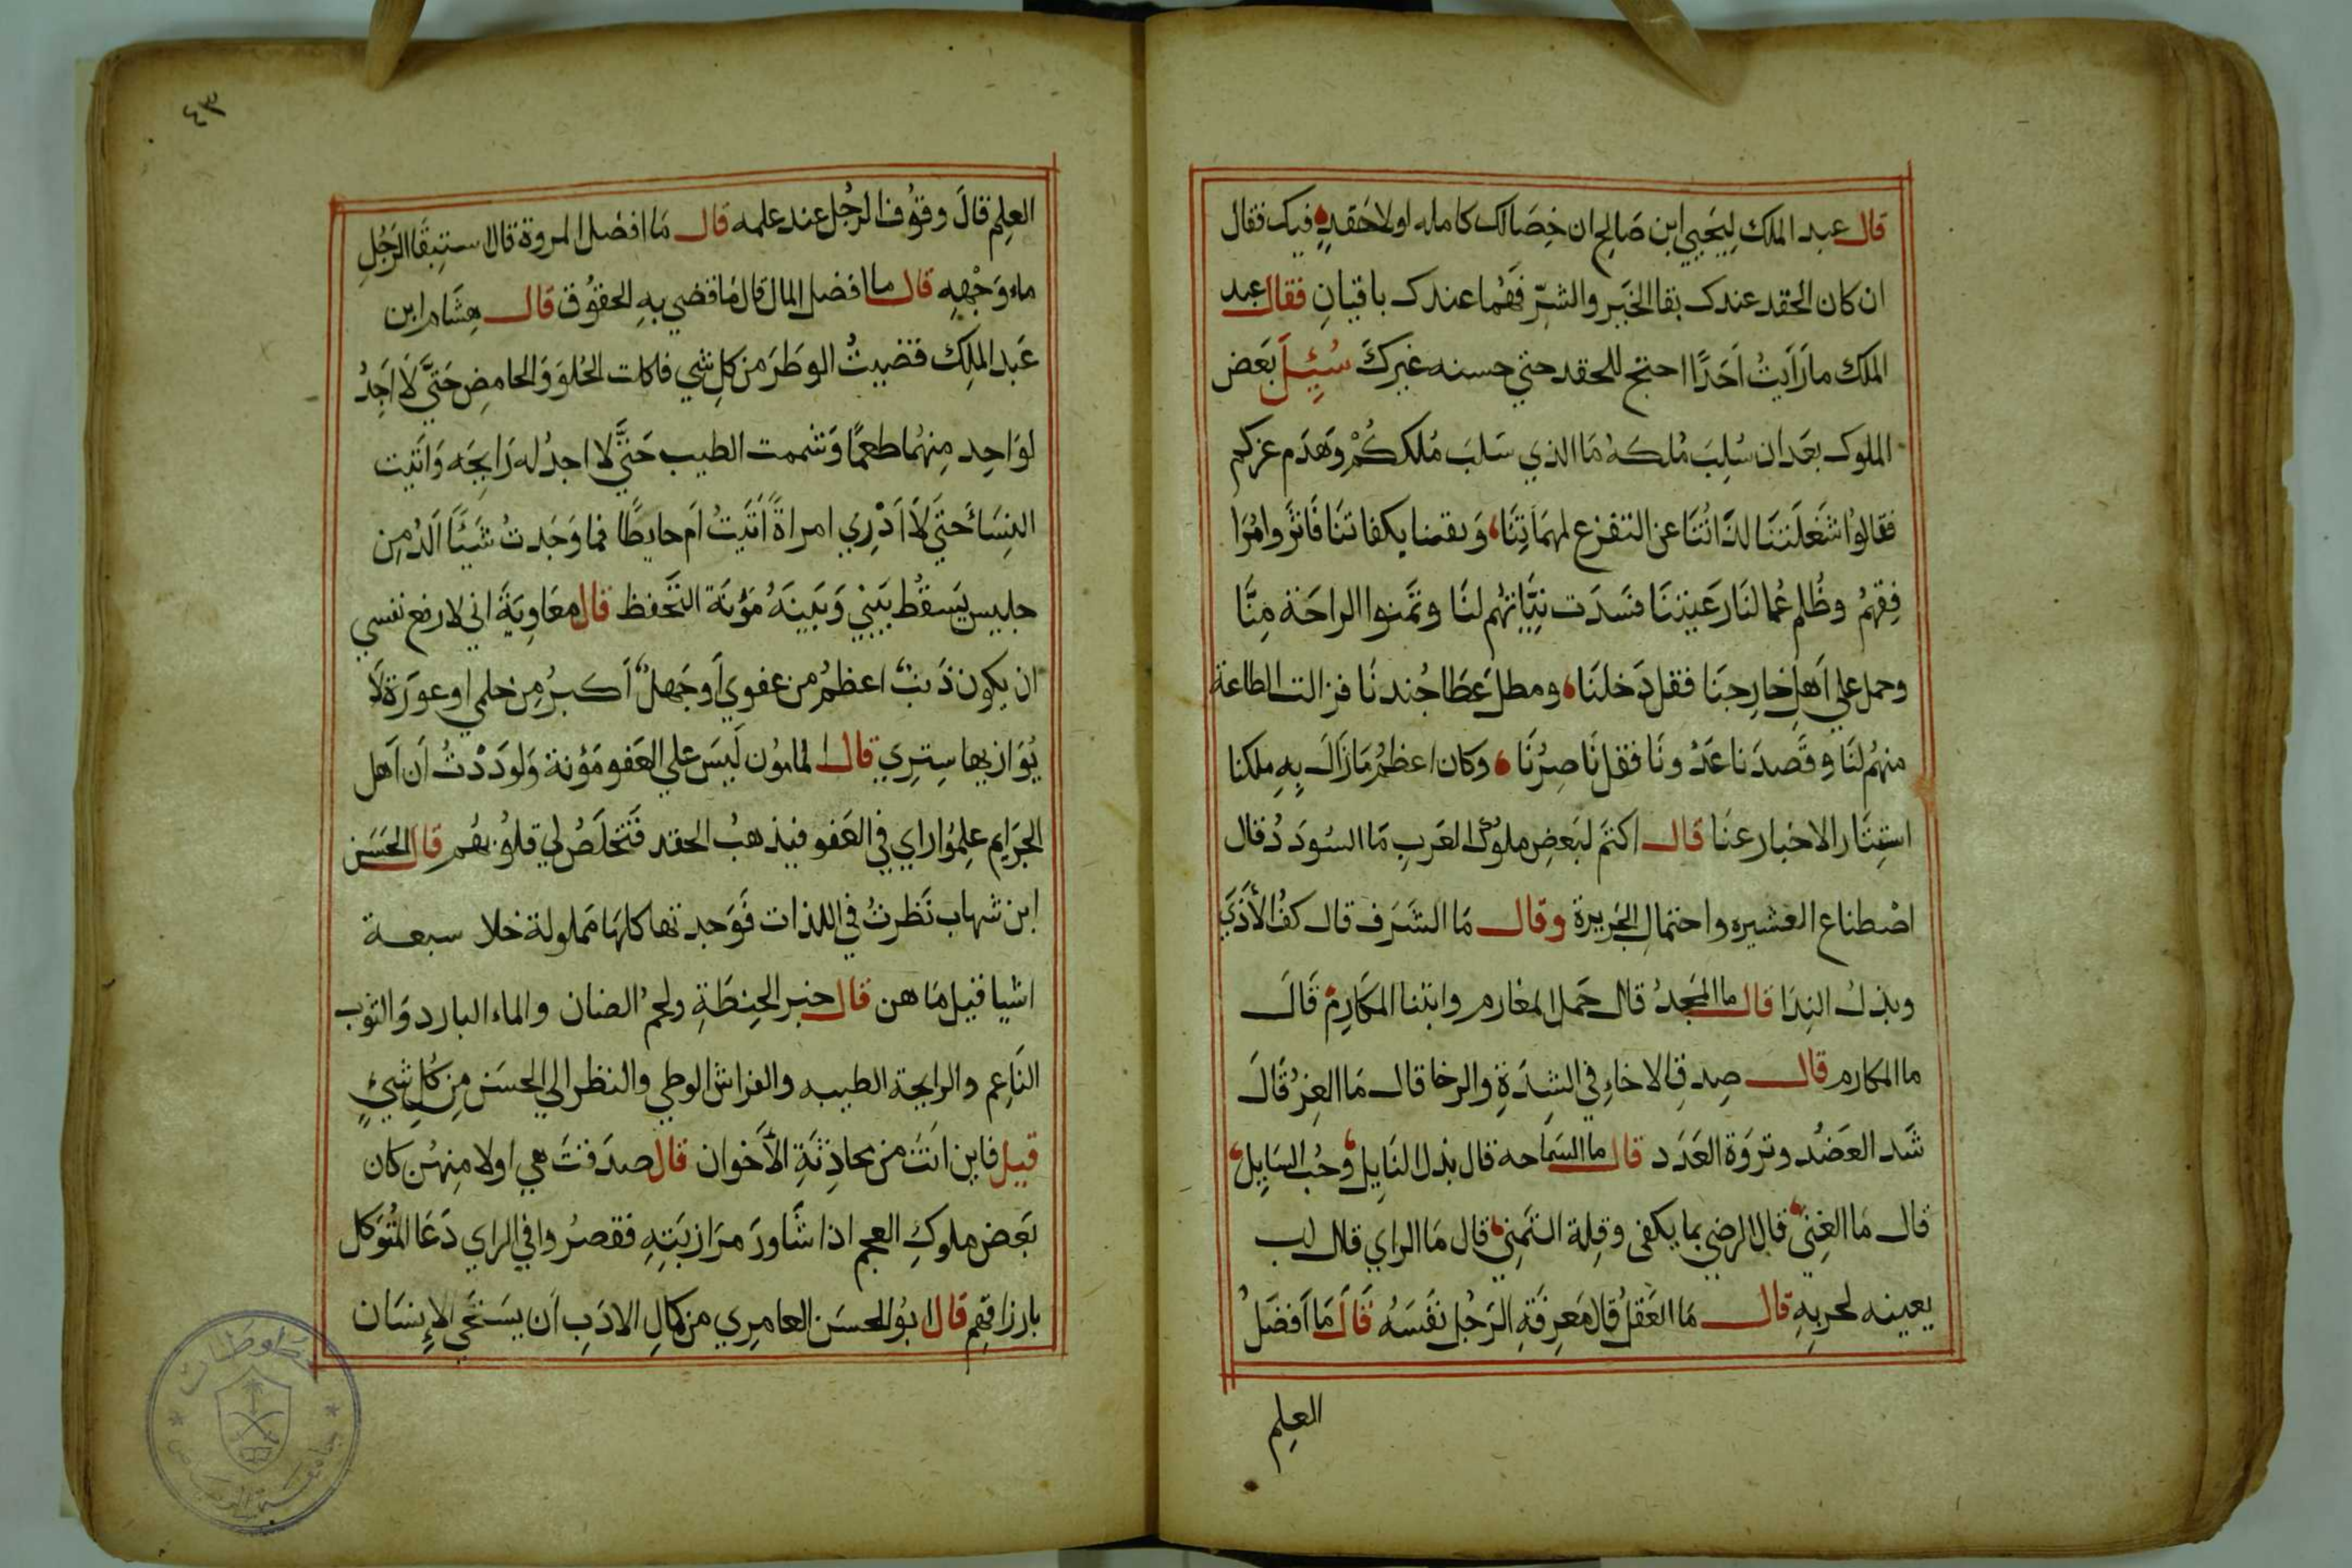 قال عبد الملك لِيَحيي ابن صَالِح ان خِصَالك كامله اولا حَقدٍ فيك فقال
ان كان الحقد عندك بقا الخَير والشرّ فَهُما عندك باقيانِ فقال عبد
الملك ما رَاَيتُ اَحَدًا احتج للحقد حتي حسنه غيركَ سُئِلَ بَعض
الملوك بعَد ان سُلِبَ مُلكه مَا الذي سَلبَ مُلككُمْ وَهَدَم عزكم
فقالوُا شَغَلَتنَا لذَّاتُنَا عن التفزع لمهمَاتِنَا وَ بكفاتنَا فَاثرَوا
فِقهمُ وظُلم عُمالنَا رَعَيتنَا فسَدَت نِيَّاتهُم لنَا وتمَنوا الراحَة مِنَّا
وحمل علي اَهلِ خارِجنَا فقل دَخلنَا ومطل عَطَا جُندنَا فزالت الطاعة
منهُم لنَا وقَصدَنا عَدُونَا فقل نَاصِرُنَا وكان اعظمُ مَا زَالَ بِهِ ملكنا
استِتَار الاخبار عنَا قال اكثم لبَعضِ ملوك العَربِ مَا السُودَدُ قال
اصْطناع العشيره واحتمال الجَرِيرة وقال مَا الشَرَف قال كفُ الأذَي
وبذلُ النِدَا قال ما المَجدُ قال حَمل المغارم وابتنا المكَارِم قَالَ
ما المكارم قال صِدقِ الاخاءِ في الشِدَةِ والرخا قال مَا العِز قَالَ
شَد العَضُد وثروَة العَدَد قال ما السَمَاحه قال بذل النَايِل وحُب السَايِل
قال مَا الغِنَي قال الرضي بما يكفى وقِلة التمَنِي قال مَا الراي قال لب
يعينه لحربهِ قال مَا العَقلُ قال مَعرِفَةِ الرَجُل نَفسَهُ قَالَ مَا اَفضَلُ
العِلم
٤٣
العِلم قالَ وقوُف الرجُل عند علمه قال مَا افضل المروة قال استبقَا الرَجُلِ
ماء وَجْههِ قال ما افضل المال قال مَا قضي بهِ الحقوُق قال هِشَام ابن
عَبد الملِك قضَيتُ الوطَرَ من كلِ شي فاكلت الحُلوَ وَالحامضِ حَتيَّ لَا اَجِدُ
لوَاحِد مِنهُما طعمًا وَشممت الطيب حَتيَّ لا اجدُ له رَايحَه وَاتَيت
النِسَا حَتي لَا اَدْرِي امراةً اَتَيتُ اَم حايطًا فما وَجَدتُ شَيئًا الَذُ مِن
جليس يَسقُط بَيني وَبَينَهُ مؤنَة التحَفظ قال معَاويَةَ اني لارفع نفسي
ان يكون ذَنبٌ اعظمُ من عفوي اَوجَهلٌ اَكبرُ مِن حلمي او عورَة لَا
يُوَازيها سِترِي قال المامُون لَيسَ علي العَفو مَؤنة وَلوَدَدْتُ اَن اَهل
الجرَايم علِمُوا راي في العَفو فيذهبُ الحقد فتَخلَصُ لي قلوُبهُم قال الحَسَن
ابن شهاب نَظرتُ في اللذات فَوَجدتها كلهَا مَملولة خلا سبعة
اشيا قيل مَا هن قال خبز الحِنطَةِ ولحمُ الضان والماء البارد وَالثوب
النَاعِم والرايحة الطيبه والفراش الوطي والنظر الي الحسَن مِن كُلِ شيءٍ
قيل فاين اَنتَ من محَادِثَةِ الأخوان قال صدَقتَ هي اولا مِنهُن كان
بَعض ملوكِ العجم اذا شَاورَ مرَازبَتِهِ فقصرُوا في الراي دَعَا المُتُوَكل
بارزاقهِم قال ابوُ الحسَن العامِري من كمالِ الادَبِ اَن يسَتحَي الإِنسَان